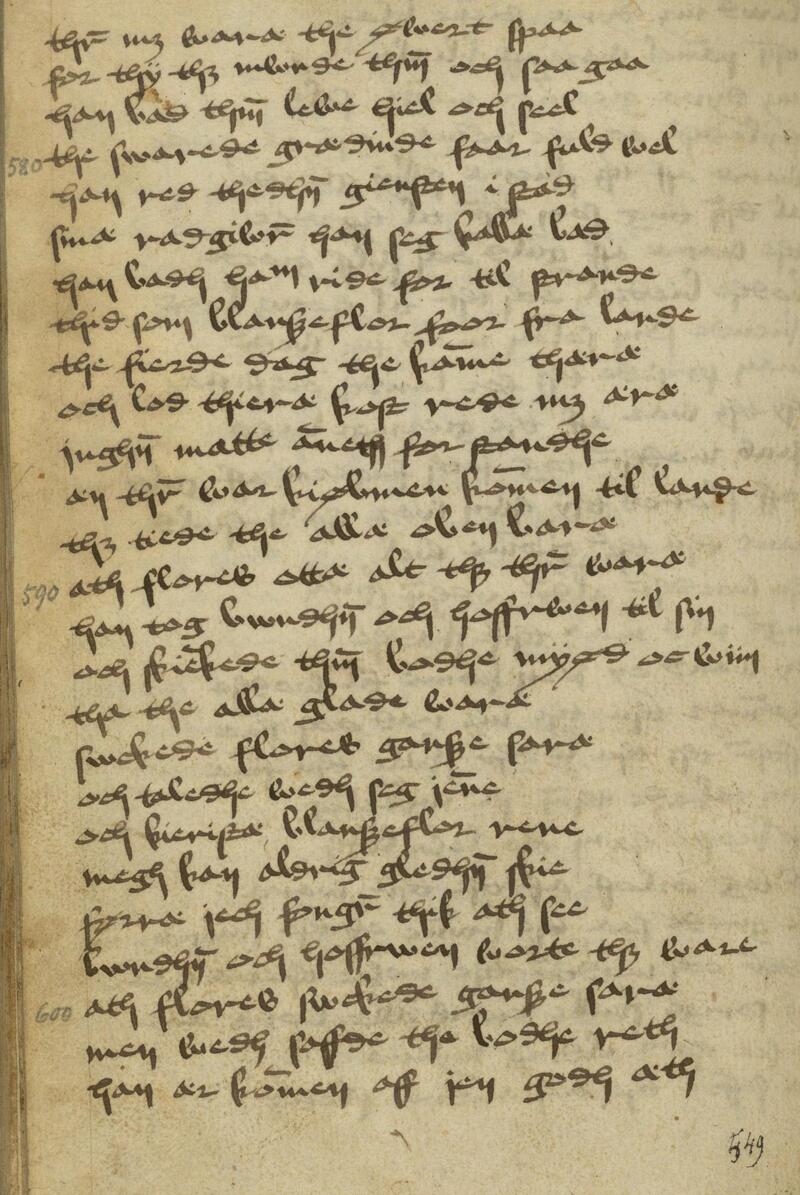 thr̄ mꝫ waræ the øwert spaa
for thÿ thꝫ mwnde thm̄ och saa gaa
han bad thm̄ lewe hiel och seel
580 the swarede grædinde faar fuld wel
han red thedhn̄ giensten i stad
sinæ radgiwr̄ han seg kallæ bad
han badh ham ride for til strande
thid som blanszeflor foor fra lande
the fierde dag the kōme thæræ
och lod thieræ kost rede mꝫ æræ
inghn̄ matte āneth for standhe
æn thr̄ war kiøbmen kōmen til lande
thꝫ tiede the allæ oben baræ
590 ath flores ottæ alt thꝫ thr̄ waræ
han tog bwndhn̄ och hoffrwen til sin
och skickede thm̄ bodhe myød oc wiin
tha the allæ glade waræ
swckede flores gansze saræ
och taledhe wedh seg iēne
och kieristæ blanszeflor rene
megh kan aldrig gledhn̄ skie
førræ iech fongr̄ thik ath see
bwndhn̄ och hoffrwen worte thꝫ ware
600 ath flores swckede gansze saræ
men wedh saffde the bodhe reth
han ær kōmen aff ien godh æth
549